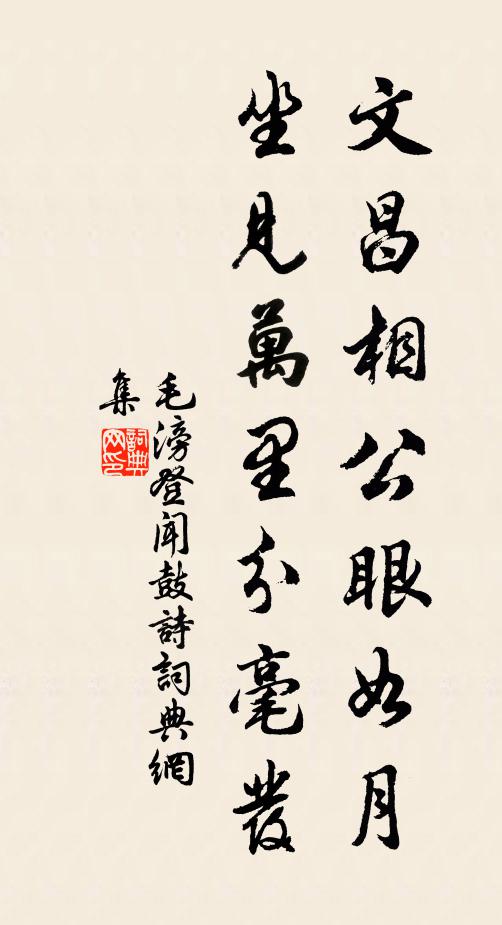 文昌相公眼如月
坐見萬里分毫發
毛滂登聞鼓詩詞典網
集
詞典
网印